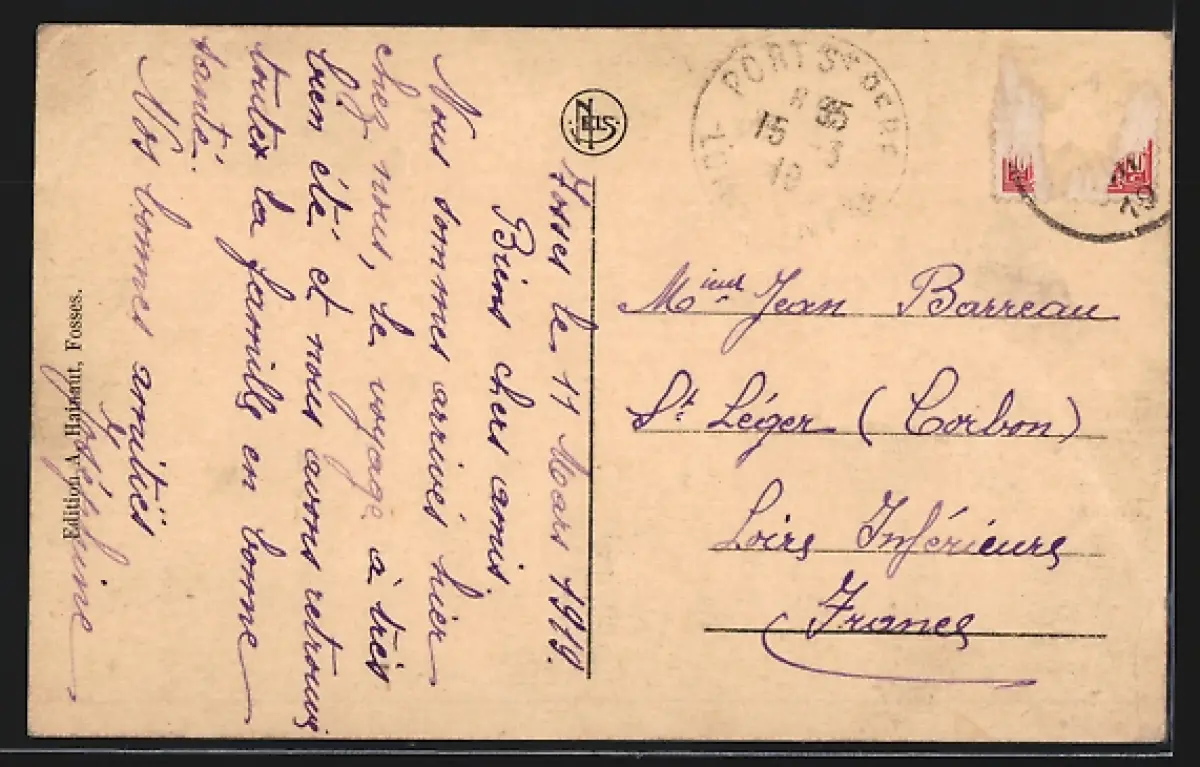 Fosses le 11 Mars 1919.
Biens chers amis.
Nous sommes arrivés hier
chez nous, le voyage à très
bien été et nous avons retrouvé
toutes la famille en bonne
santé.
Vos bonnes amitiés
Joséphine
Edition A. Haisaut, Fosses.
NELS
PORT Ste
15 -3
19
19
Jean Barreau
St Léger (Corbon)
Loire Inférieure
France